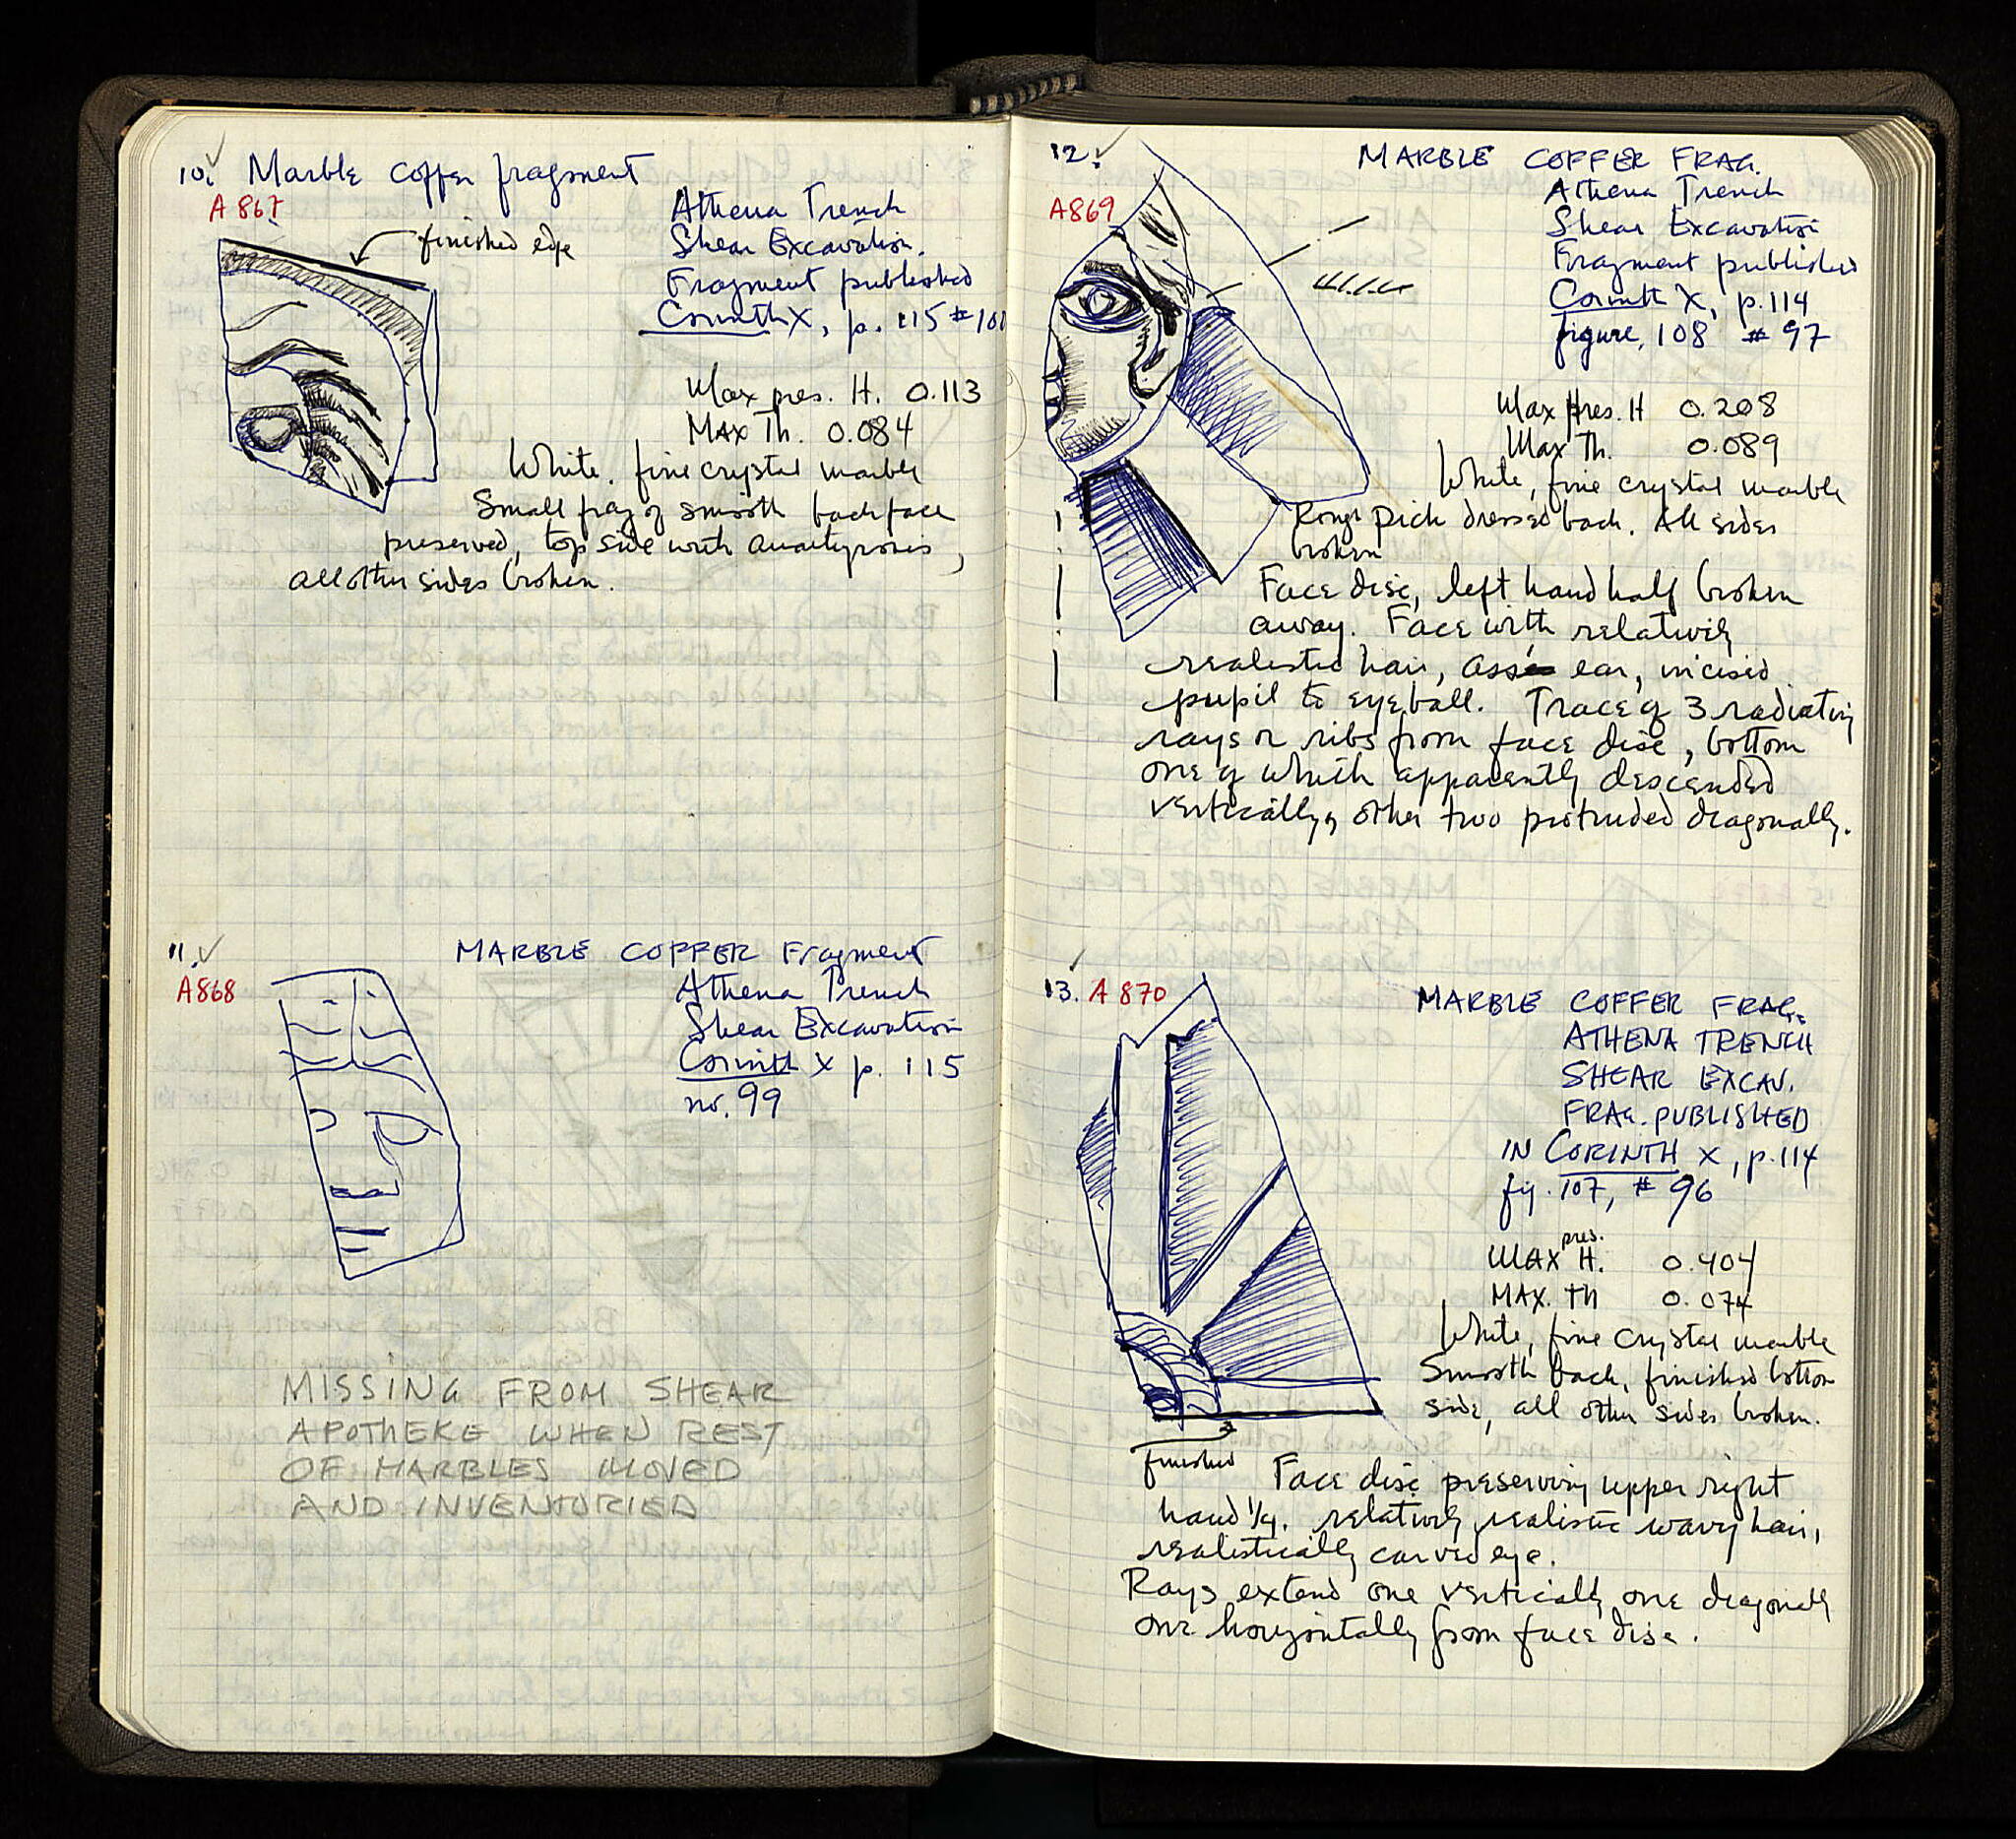 10. Marble coffer fragment
A 867
finished edge
Athena Trench
Shear Excavation.
Fragment published
Corinth X, p. 115 #101
Max pres. H. 0.113
Max Th. 0.084
White, fine crystal marble
Small frag of smooth back face
preserved, top side with anathyrosis,
all other sides broken.
11.
A868
MARBLE COFFER Fragment
Athena Trench
Shear Excavation
Corinth X p. 115
no. 99
MISSING FROM SHEAR
APOTHEKE WHEN REST
OF MARBLES MOVED
AND INVENTORIED
12.
A869
MARBLE COFFER FRAG.
Athena Trench
Shear Excavation
Fragment published
Corinth X, p. 114
figure, 108 # 97
Max pres. H 0.208
Max Th. 0.089
White, fine crystal marble
Rough pick dressed back. All sides
broken
Face disc, left hand half broken
away. Face with relatively
realistic hair, ass ear, incised
pupil to eyeball. Trace of 3 radiating
rays or ribs from face disc, bottom
one of which apparently descended
vertically, other two protruded diagonally.
13. A 870
MARBLE COFFER FRAG.
ATHENA TRENCH
SHEAR EXCAV.
FRAG. PUBLISHED
IN CORINTH X, p. 114
fig. 107, # 96
MAX pres. H. 0.404
MAX. TH 0.074
White, fine crystal marble
Smooth back, finished bottom
side, all other sides broken.
finished
Face disc preserving upper right
hand 1/4. relatively realistic wavy hair,
realistically carved eye.
Rays extend one vertically one diagonally
one horizontally from face disc.